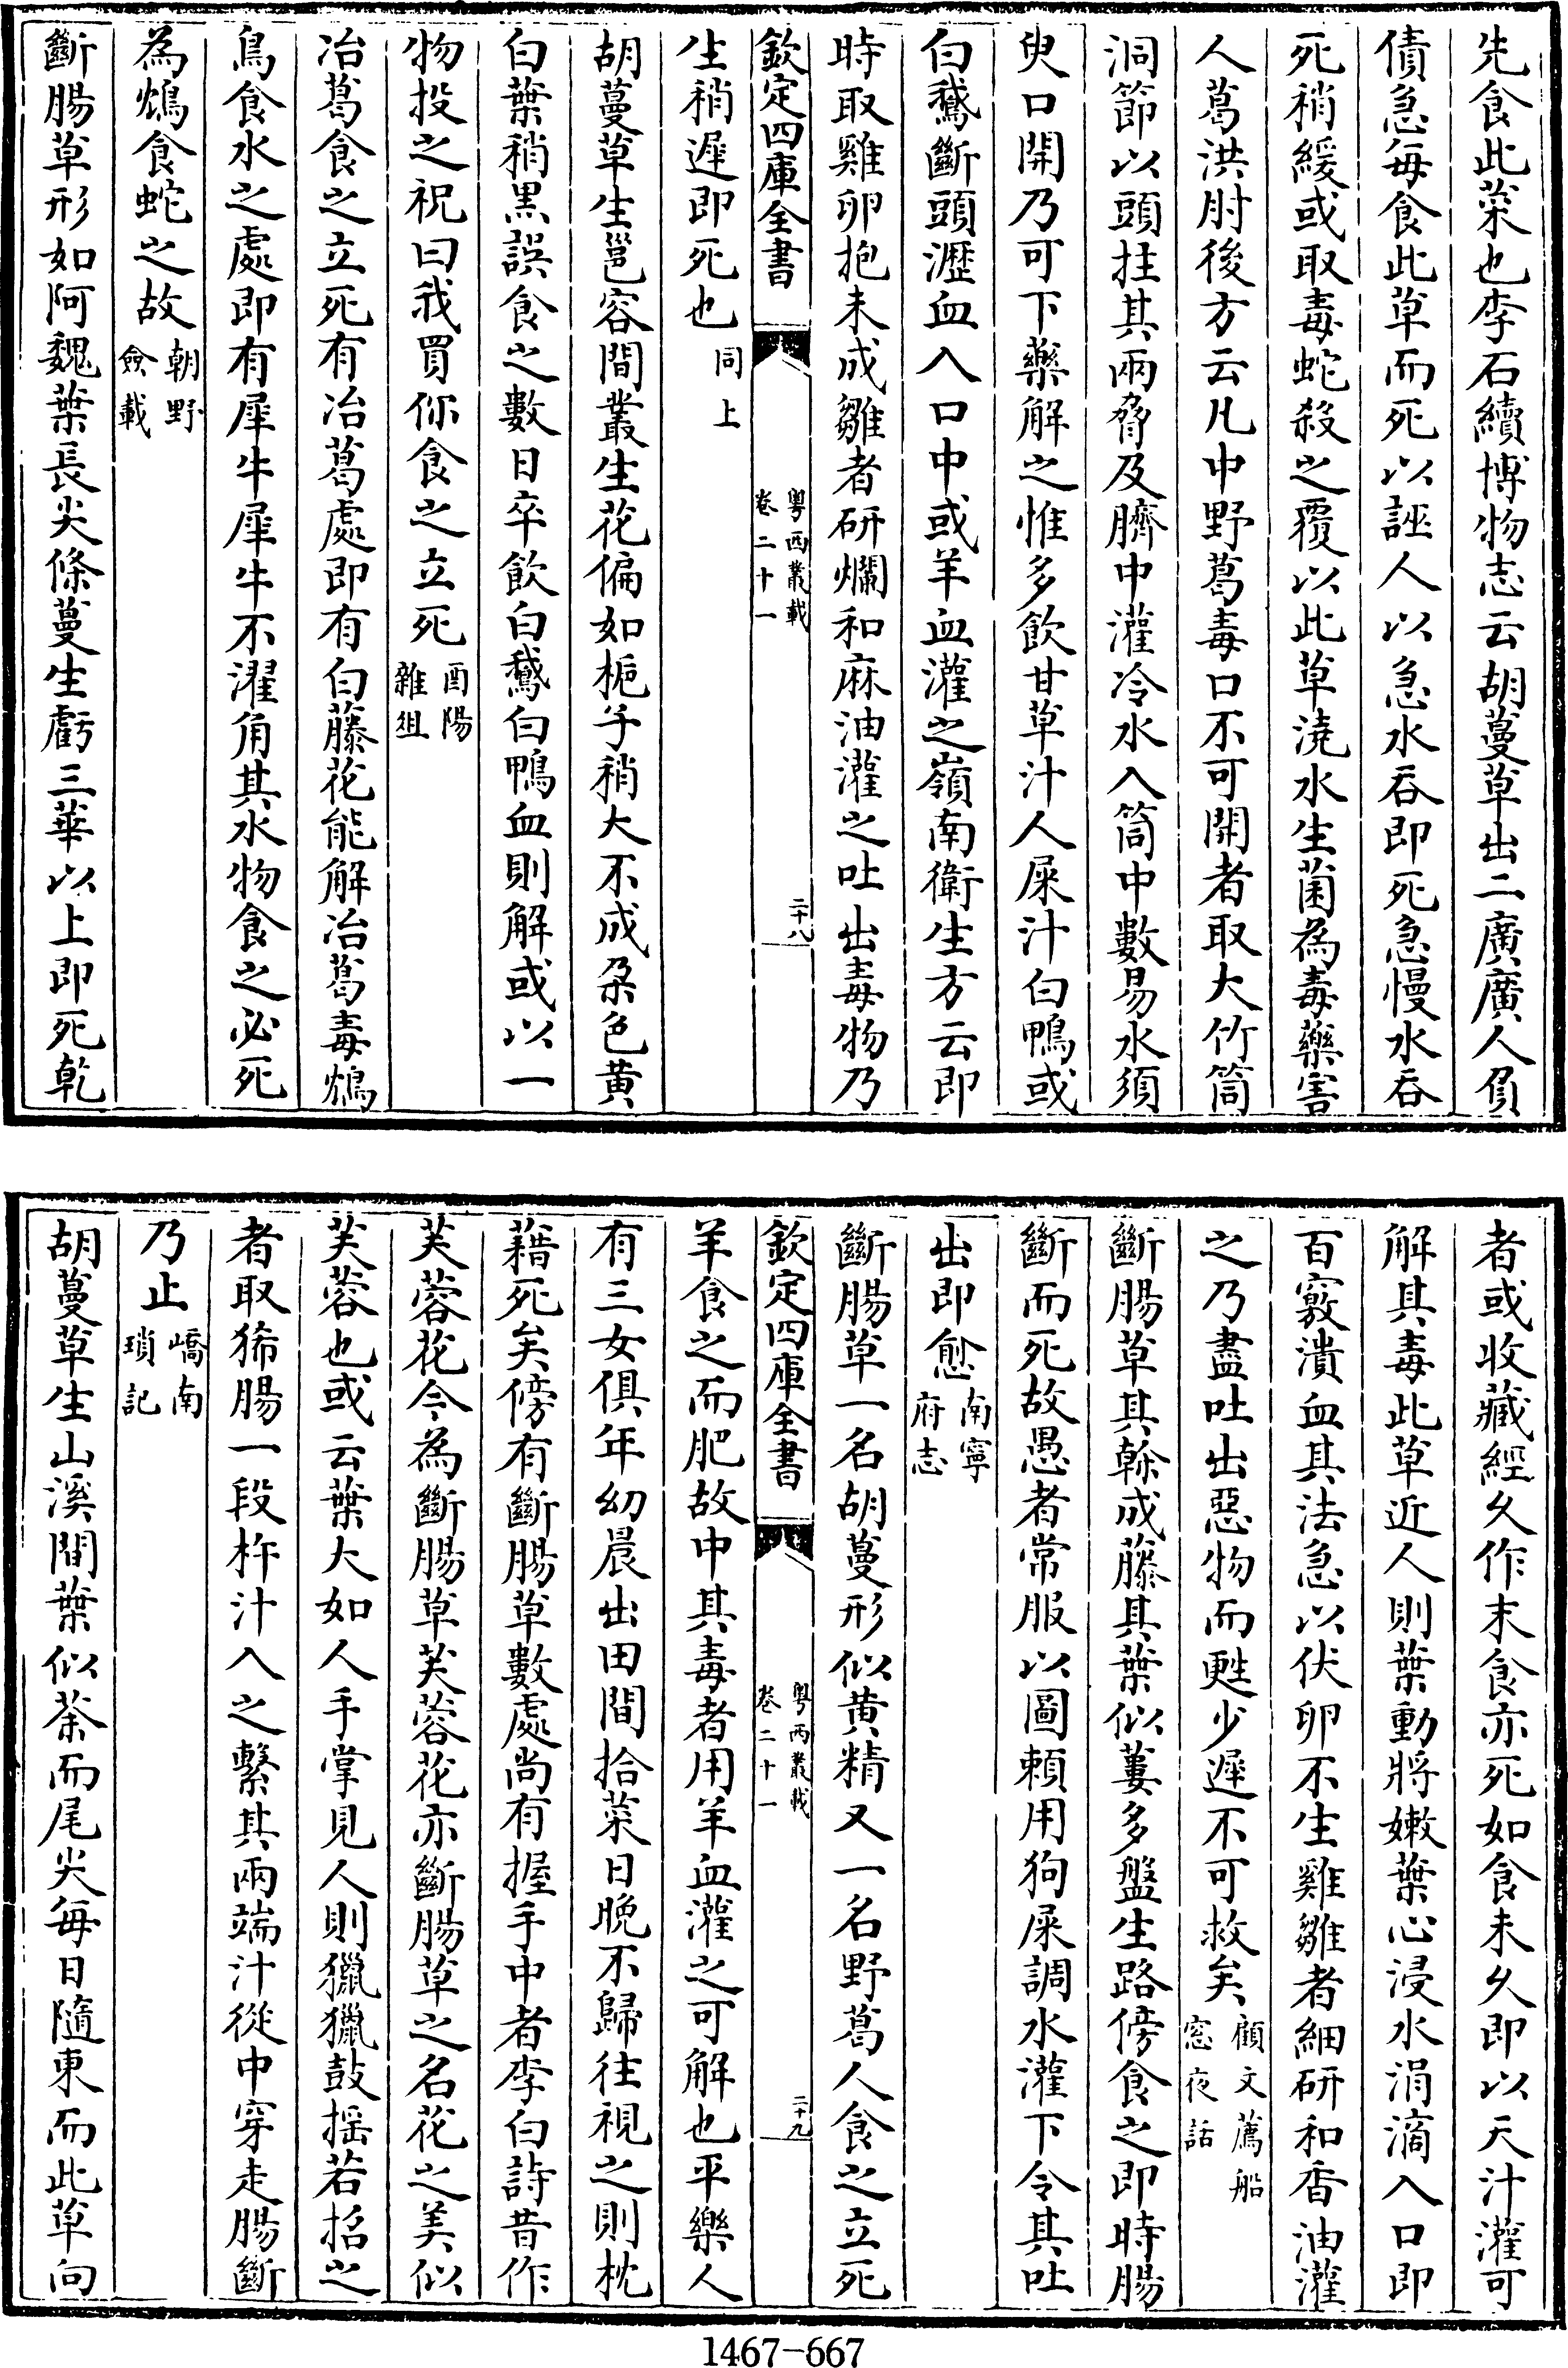 先食此菜也李石續博物志云胡蔓草出二廣廣人負
債急每食此草而死以誣人以急水吞即死急慢水吞
死稍緩或取毒蛇殺之覆以此草澆水生菌為毒藥害
人葛洪肘後方云凡中野葛毒口不可開者取大竹筒
洞節以頭拄其兩脅及臍中灌冷水入筒中數易水須
臾口開乃可下藥解之惟多飲甘草汁人屎汁白鴨或
白鵝斷頭瀝血入口中或羊血灌之嶺南衛生方云即
時取雞卵抱未成雛者研爛和麻油灌之吐出毒物乃
欽定四庫全書 粵西叢載 卷二十一 二十八
生稍遲即死也同上
胡蔓草生邕容間叢生花偏如梔子稍大不成朶色黄
白葉稍黑誤食之數日卒飲白鵝白鴨血則解或以一
物投之祝曰我買你食之立死酉陽雜俎
冶葛食之立死有冶葛處即有白藤花能解冶葛毒鴆
鳥食水之處即有犀牛犀牛不濯角其水物食之必死
為鴆食蛇之故朝野僉載
斷腸草形如阿魏葉長尖條蔓生虧三華以上即死乾
者或收藏經久作末食亦死如食未久即以天汁灌可
解其毒此草近人則葉動將嫩葉心浸水涓滴入口即
百竅潰血其法急以伏卵不生雞雛者細研和香油灌
之乃盡吐出惡物而甦少遲不可救矣顧文薦船窓夜話
斷腸草其榦成藤其葉似蔞多盤生路傍食之即時腸
斷而死故愚者常服以圖賴用狗屎調水灌下令其吐
出即愈南寧府志
斷腸草一名胡蔓形似黄精又一名野葛人食之立死
欽定四庫全書 粵西叢載 卷二十一 二十九
羊食之而肥故中其毒者用羊血灌之可解也平樂人
有三女俱年幼晨出田間拾菜日晚不歸往視之則枕
藉死矣傍有斷腸草數處尚有握手中者李白詩昔作
芙蓉花今為斷腸草芙蓉花亦斷腸草之名花之美似
芙蓉也或云葉大如人手掌見人則獵獵鼓揺若招之
者取狶腸一段杵汁入之繫其兩端汁從中穿走腸斷
乃止嶠南瑣記
胡蔓草生山溪間葉似茶而尾尖每日隨東而此草向
1467-667